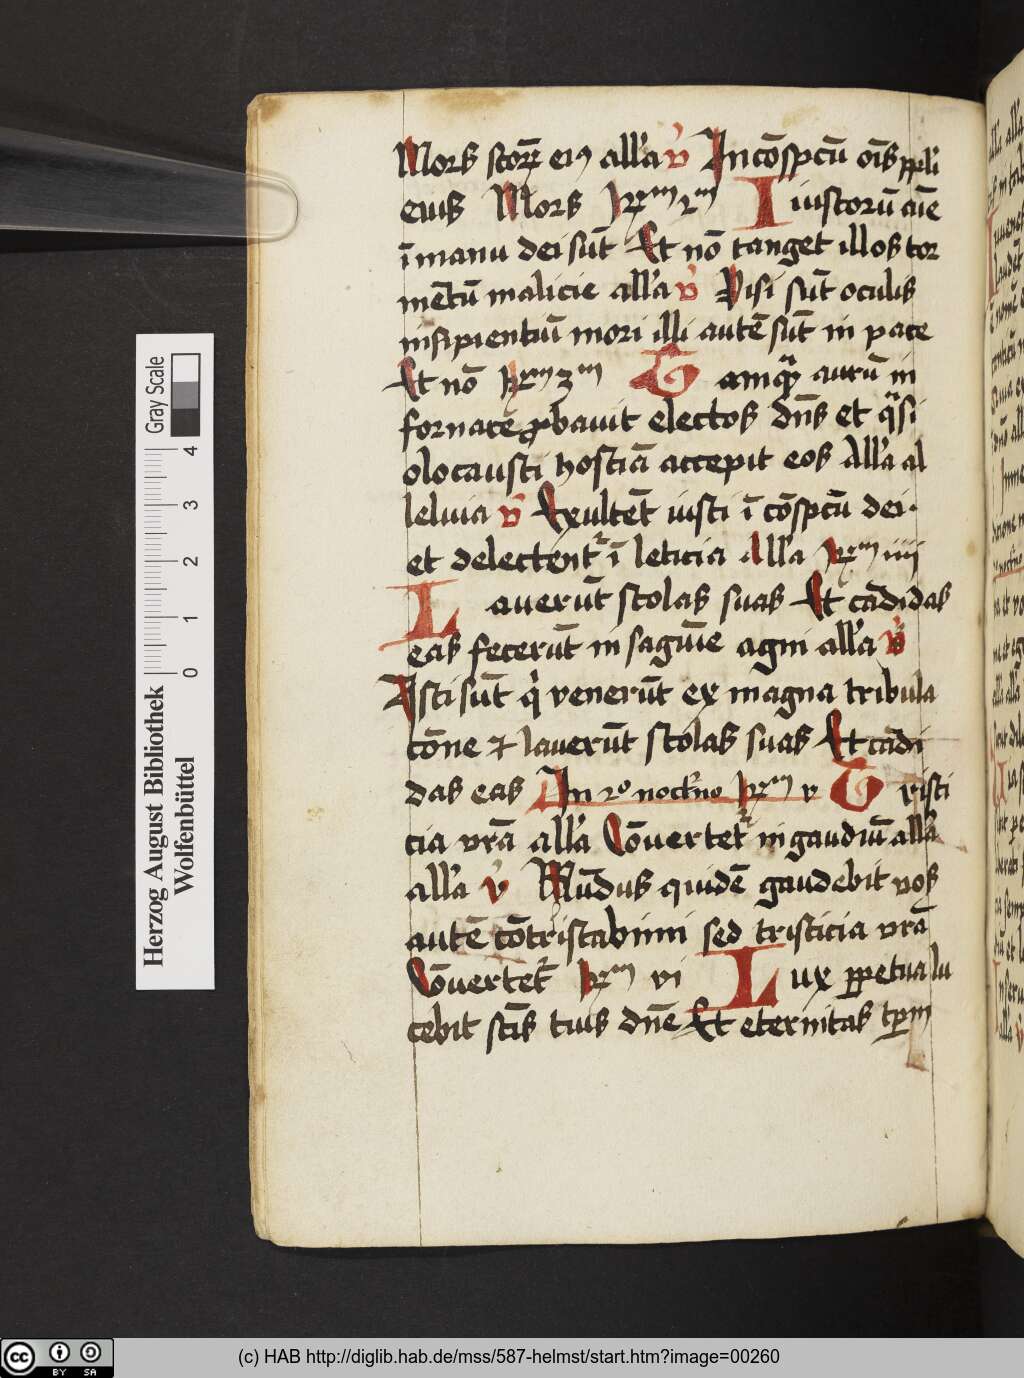 Mors scoꝝ eiꝰ all'a v̓ In cōspctū oīs ppl'i
eius Mors ℟m 2m I iustorū aīe
ī manu dei sūt Et nō tanget illos tor
mētū malicie all'a v̓ Visi sūt oculis
insipientiū mori illi autē sūt in pace
Et nō ℟m 3m T amqͣ aurū in
fornace ꝓbauit electos dn̄s et qͣsi
olocausti hostiā accepit eos all'a al
leluia v̓ Exultēt iusti ī cōspctū dei.
et delectentʳ ī leticia all'a ℟m iiij
L auerūt stolas suas Et cādidas
eas fecerūt in sagwīe agni all'a v̓
Isti sūt qͥ venerūt ex magna tribula
cōne et lauerūt stolas suas Et cādi
das eas In 2o nocturno ℟m v T risti
cia vrā all'a Cōuertetʳ in gaudiū all'a
all'a v̓ Mūdus quidē gaudebit vos
autē cōtristabimi sed tristicia vrā
Cōuertetʳ ℟m vi L ux ꝑpetua lu
cebit scīs tuis dn̄e Et eternitas tꝑm
Herzog August Bibliothek
Wolfenbüttel
0 1 2 3 4
Gray Scale
cc BY SA
(c) HAB http://diglib.hab.de/mss/587-helmst/start.htm?image=00260